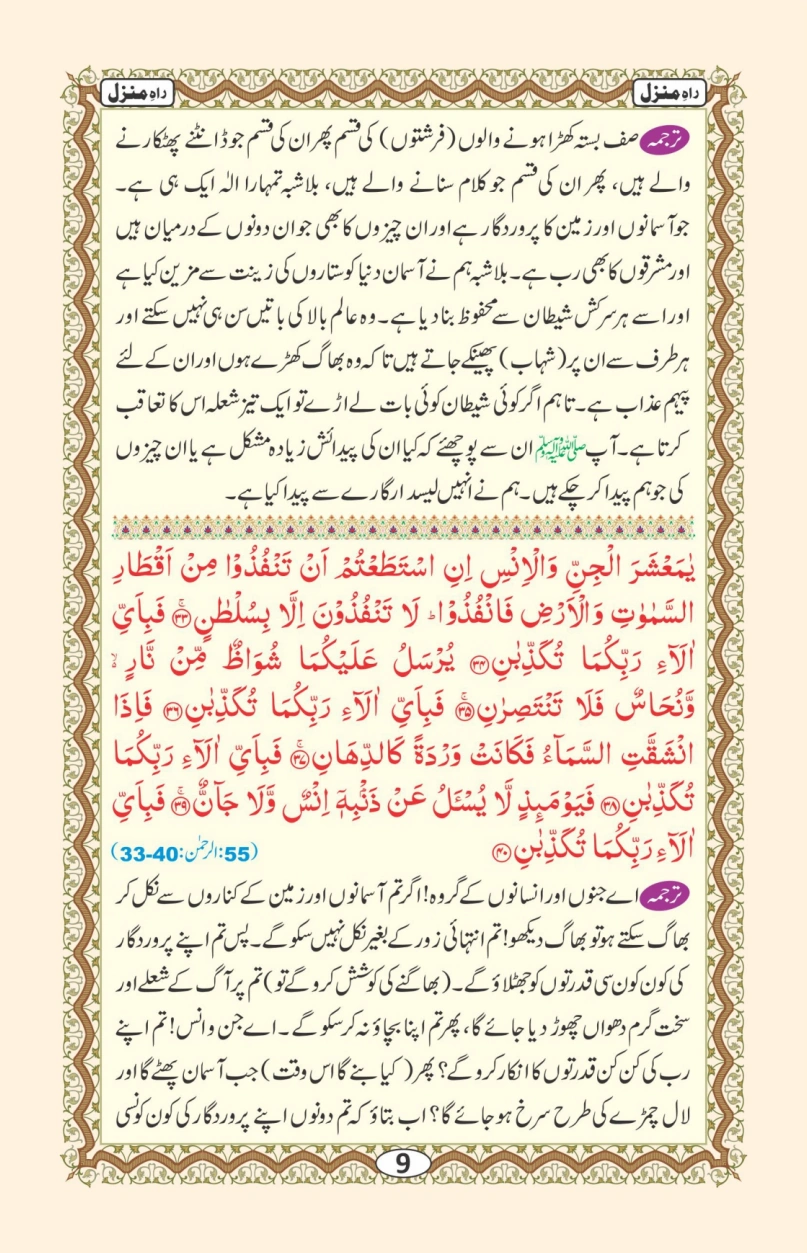 راہِ منزل
راہِ منزل
ترجمہ صف بستہ کھڑا ہونے والوں (فرشتوں) کی قسم پھر ان کی قسم جو ڈانٹنے پھٹکارنے
والے ہیں، پھر ان کی قسم جو کلام سنانے والے ہیں، بلاشبہ تمہارا الٰہ ایک ہی ہے۔
جو آسمانوں اور زمین کا پروردگار ہے اور ان چیزوں کا بھی جو ان دونوں کے درمیان ہیں
اور مشرقوں کا بھی رب ہے۔ بلاشبہ ہم نے آسمان دنیا کو ستاروں کی زینت سے مزین کیا ہے
اور اسے ہر سرکش شیطان سے محفوظ بنا دیا ہے۔ وہ عالم بالا کی باتیں سن ہی نہیں سکتے اور
ہر طرف سے ان پر (شہاب) پھینکے جاتے ہیں تاکہ وہ بھاگ کھڑے ہوں اور ان کے لئے
پیہم عذاب ہے۔ تاہم اگر کوئی شیطان کوئی بات لے اڑے تو ایک تیز شعلہ اس کا تعاقب
کرتا ہے۔ آپ ﷺ ان سے پوچھئے کہ کیا ان کی پیدائش زیادہ مشکل ہے یا ان چیزوں
کی جو ہم پیدا کر چکے ہیں۔ ہم نے انہیں لیسدار گارے سے پیدا کیا ہے۔
یٰمَعْشَرَ الْجِنِّ وَالْاِنْسِ اِنِ اسْتَطَعْتُمْ اَنْ تَنْفُذُوْا مِنْ اَقْطَارِ
السَّمٰوٰتِ وَالْاَرْضِ فَانْفُذُوْا ؕ لَا تَنْفُذُوْنَ اِلَّا بِسُلْطٰنٍ ۚ﴿۳۳﴾ فَبِاَیِّ
اٰلَآءِ رَبِّكُمَا تُكَذِّبٰنِ ﴿۳۴﴾ یُرْسَلُ عَلَیْكُمَا شُوَاظٌ مِّنْ نَّارٍ ۙ
وَّنُحَاسٌ فَلَا تَنْتَصِرٰنِ ۚ﴿۳۵﴾ فَبِاَیِّ اٰلَآءِ رَبِّكُمَا تُكَذِّبٰنِ ﴿۳۶﴾ فَاِذَا
انْشَقَّتِ السَّمَآءُ فَكَانَتْ وَرْدَةً كَالدِّهَانِ ۚ﴿۳۷﴾ فَبِاَیِّ اٰلَآءِ رَبِّكُمَا
تُكَذِّبٰنِ ﴿۳۸﴾ فَیَوْمَىِٕذٍ لَّا یُسْـَٔلُ عَنْ ذَنْۢبِهٖۤ اِنْسٌ وَّلَا جَآنٌّ ۚ﴿۳۹﴾ فَبِاَیِّ
اٰلَآءِ رَبِّكُمَا تُكَذِّبٰنِ ﴿۴۰﴾ (55:الرحمٰن:33-40)
ترجمہ اے جنوں اور انسانوں کے گروہ! اگر تم آسمانوں اور زمین کے کناروں سے نکل کر
بھاگ سکتے ہو تو بھاگ دیکھو! تم انتہائی زور کے بغیر نکل نہیں سکو گے۔ پس تم اپنے پروردگار
کی کون کون سی قدرتوں کو جھٹلاؤ گے۔ (بھاگنے کی کوشش کرو گے تو) تم پر آگ کے شعلے اور
سخت گرم دھواں چھوڑ دیا جائے گا، پھر تم اپنا بچاؤ نہ کر سکو گے۔ اے جن و انس! تم اپنے
رب کی کن کن قدرتوں کا انکار کرو گے؟ پھر ( کیا بنے گا اس وقت) جب آسمان پھٹے گا اور
لال چمڑے کی طرح سرخ ہو جائے گا؟ اب بتاؤ کہ تم دونوں اپنے پروردگار کی کون کونسی
9